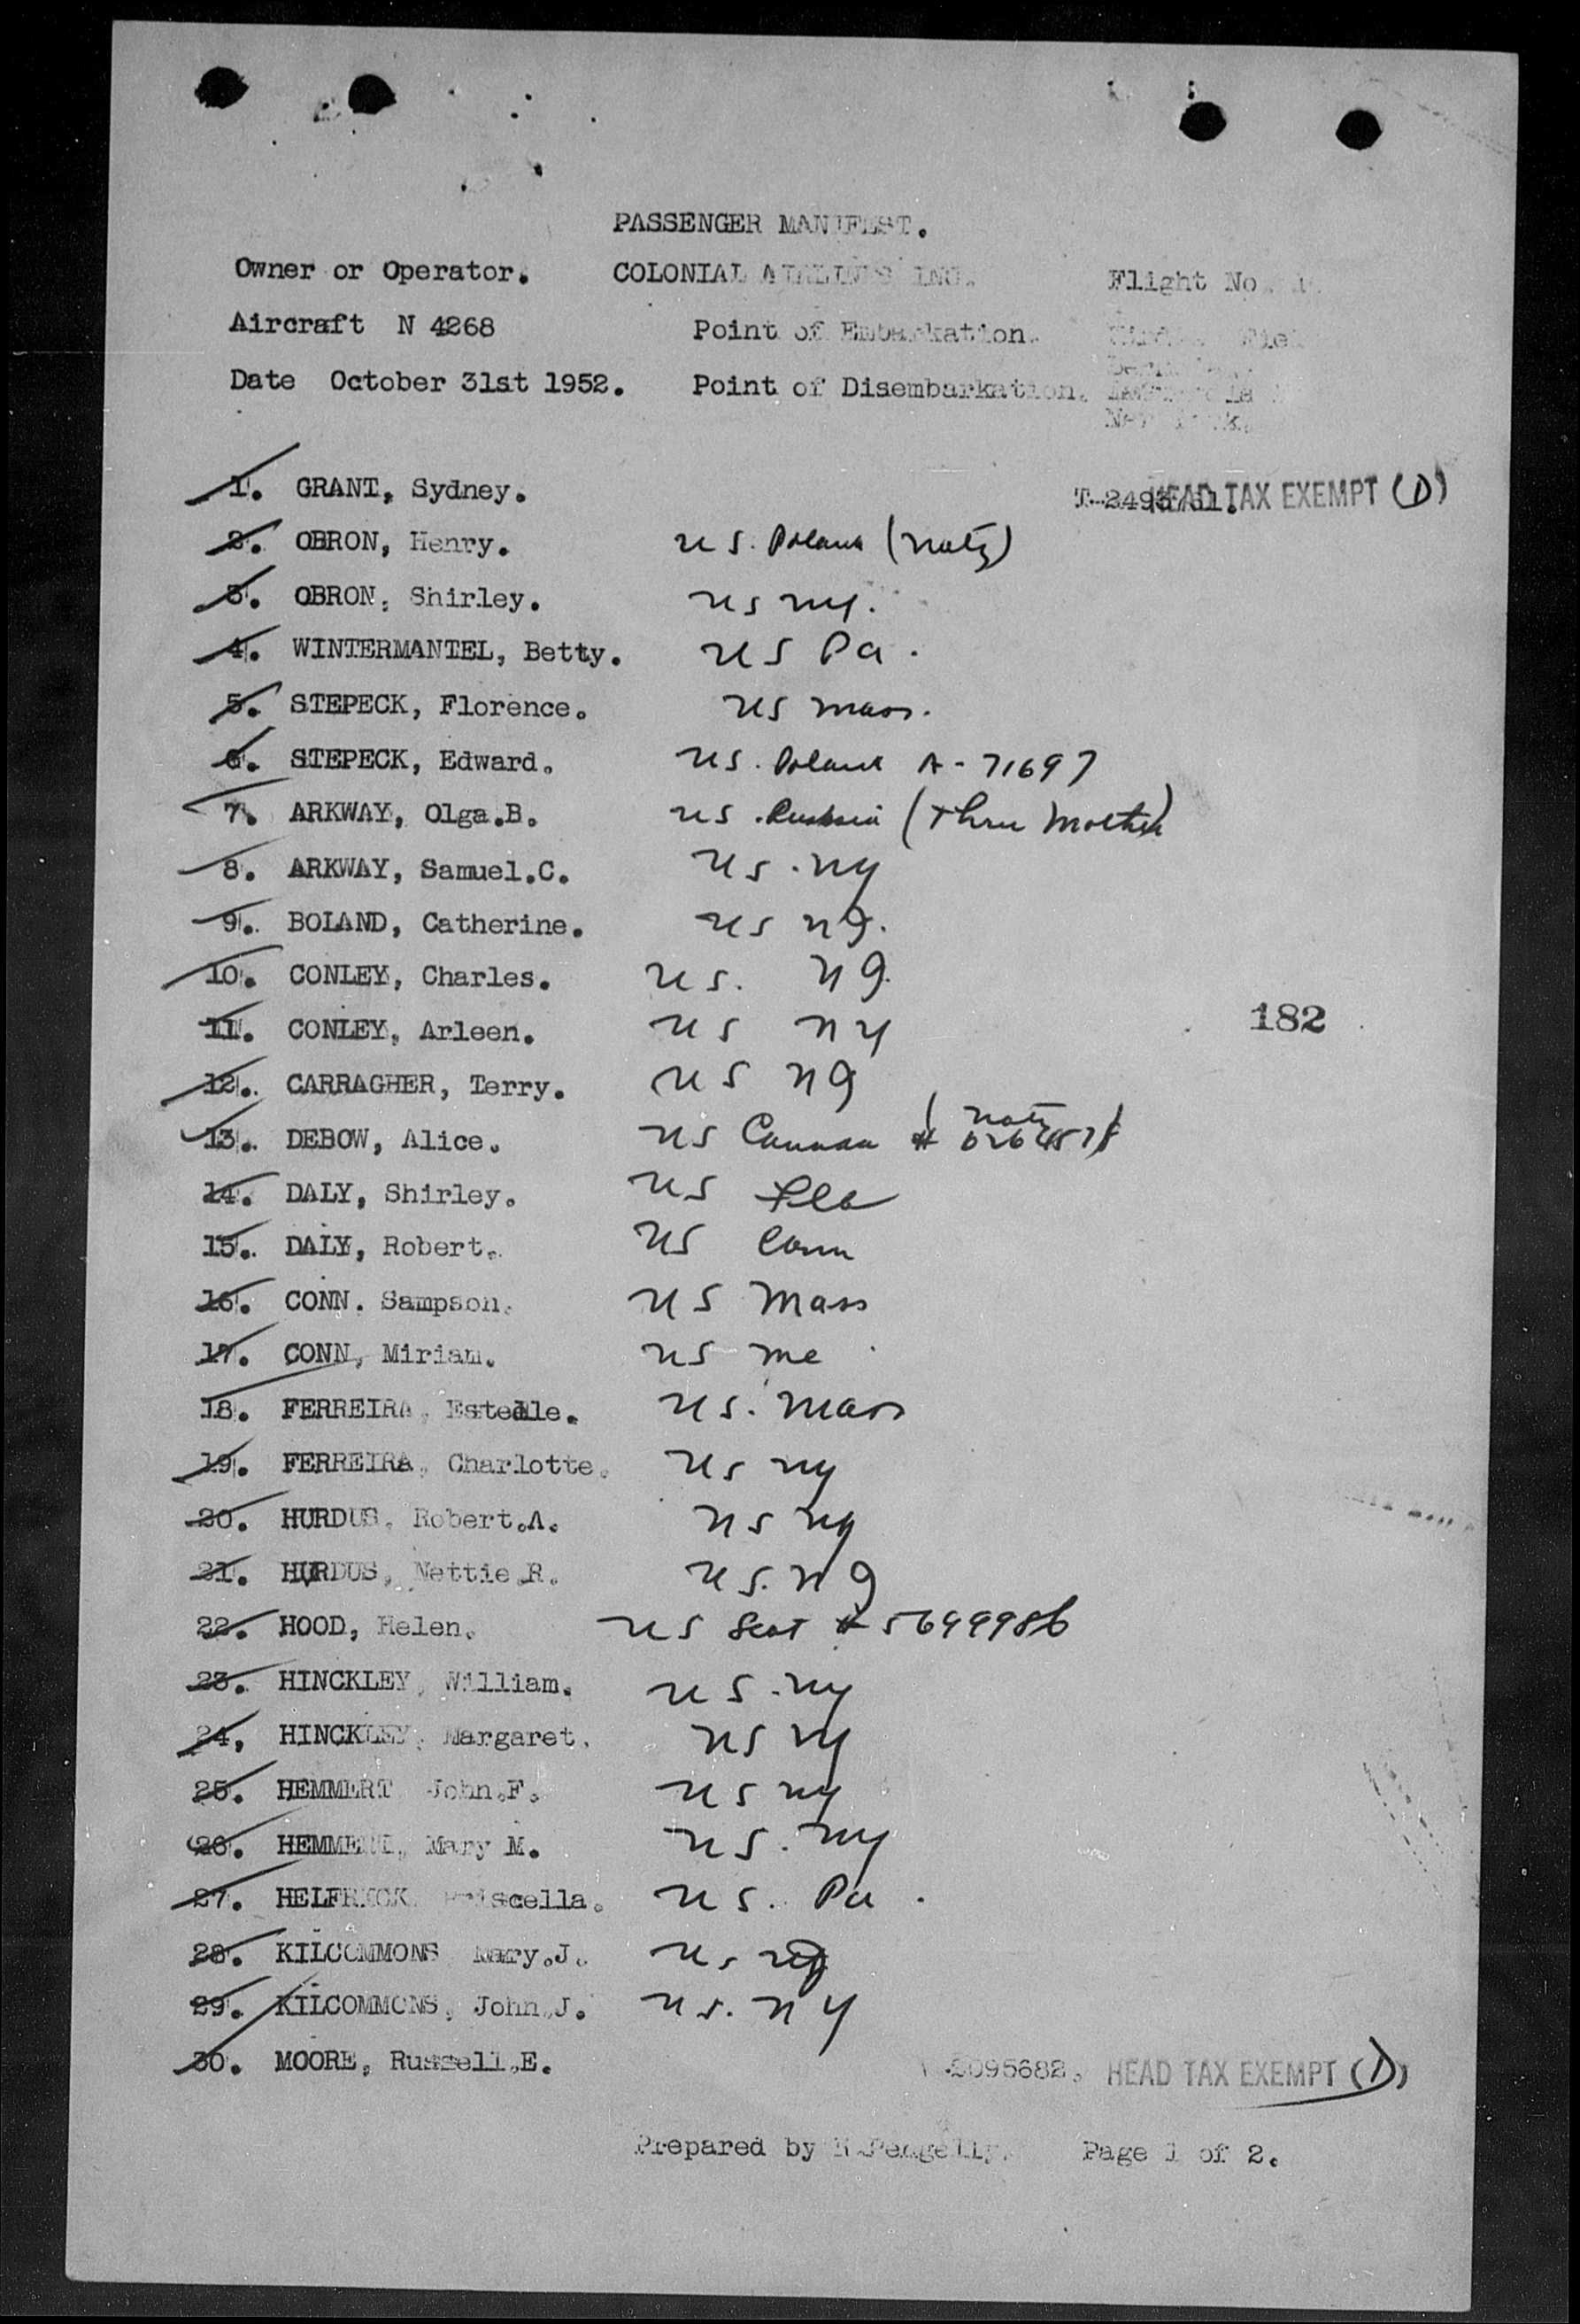 PASSENGER MANIFEST.
Owner or Operator. COLONIAL AIRLINES INC. Flight No.
Aircraft N 4268 Point of Embarkation.
Date October 31st 1952. Point of Disembarkation.
New York.
1. GRANT, Sydney. HEAD TAX EXEMPT (D)
2. OBRON, Henry. US. Poland (Natz)
3. OBRON, Shirley. US NY.
4. WINTERMANTEL, Betty. US Pa.
5. STEPECK, Florence. US Mass.
6. STEPECK, Edward. US. Poland A-71697
7. ARKWAY, Olga.B. US. Russia (Thru Mother)
8. ARKWAY, Samuel.C. US. NY
9. BOLAND, Catherine. US NJ.
10. CONLEY, Charles. US. NJ.
11. CONLEY, Arleen. US NY
12. CARRAGHER, Terry. US NJ
13. DEBOW, Alice. US Canada # (Natz
14. DALY, Shirley. US Fla
15. DALY, Robert. US Conn
182
16. CONN. Sampson. US Mass
17. CONN, Miriam. US Me
18. FERREIRA, Estedle. US. Mass
19. FERREIRA, Charlotte. US NY
20. HURDUS, Robert.A. US NY
21. HURDUS, Nettie.R. US. NJ
22. HOOD, Helen. US Scot # 5699986
23. HINCKLEY, William. US. NY
24, HINCKLEY, Margaret. US NY
25. HEMMERT John.F. US NY
26. HEMMERT, Mary M. US. NY
27. HELFRICK Priscella. US. Pa.
28. KILCOMMONS Mary.J. US
29. KILCOMMONS, John.J. US. NY
30. MOORE, Russell.E. 2095682. HEAD TAX EXEMPT (D)
Prepared by Pengelly. Page 1 of 2.